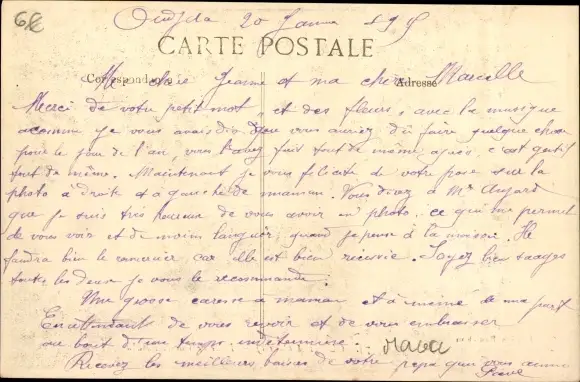 6€
Oudjda 20 Janvier 1915
CARTE POSTALE
Correspondance
Adresse
Ma chère Jeanne et ma chère Marcelle
Merci de votre petit mot, et des fleurs, avec la musique
comme je vous avais dit que vous auriez dû faire quelque chose
pour le jour de l'an, vous l'avez fait tout de même après, c'est gentil
tout de même. Maintenant je vous félicite de votre pose sur la
photo à droite et à gauche de maman. Vous direz à Mr
que je suis très heureux de vous avoir en photo, ce qui me permet
de vous voir et de moins languir quand je pense à la maison. Il
faudra bien le remercier car elle est bien réussie. Soyez bien sages
toutes les deux je vous le recommande.
Une grosse caresse à maman et à mémé de ma part
En attendant de vous revoir et de vous embrasser
au bout d'un temps indéterminé.
Recevez les meilleurs baisers de votre papa qui vous aime
Maroc